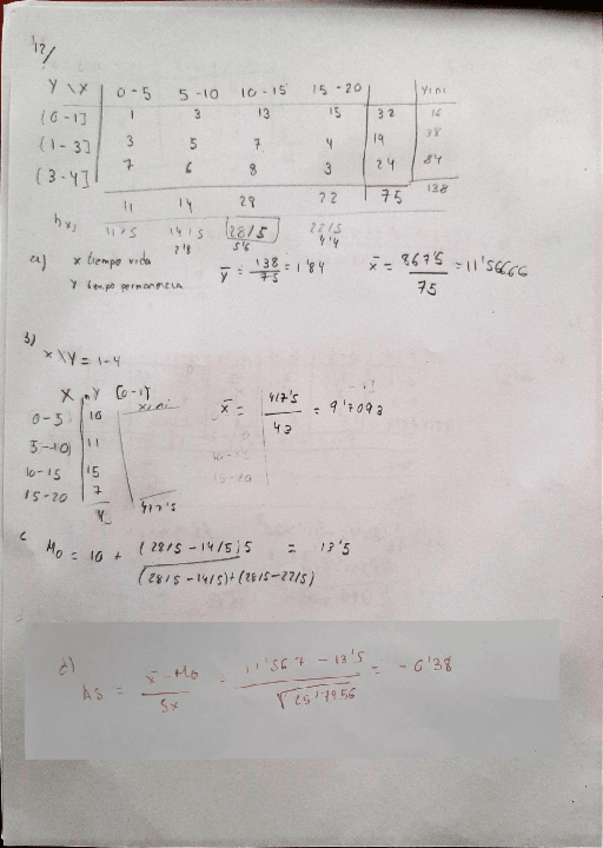 12/
Y \ X 0-5 5-10 10-15 15-20 yi ni
(0-1] 1 3 13 15 32 16
(1-3] 3 5 7 4 19 38
(3-4] 7 6 8 3 24 84
11 14 28 22 75 138
hxj 11/5 14/5 28/5 22/5
2'8 5'6 4'4
a) x tiempo vida ȳ = 138/75 = 1'84 x̄ = 867'5/75 = 11'56666
y tiempo permanencia
b)
x \ Y = 1-4
X , Y (0-1] xi ni
0-5 10
5-10 11
10-15 15
15-20 7
43 417'5
x̄ = 417'5/43 = 9'7093
10-15
15-20
c Mo = 10 + (28/5 - 14/5) 5 / (28/5 - 14/5) + (28/5 - 22/5) = 13'5
d)
AS = x̄ - Mo / Sx = 11'567 - 13'5 / √25'7956 = - 0'38